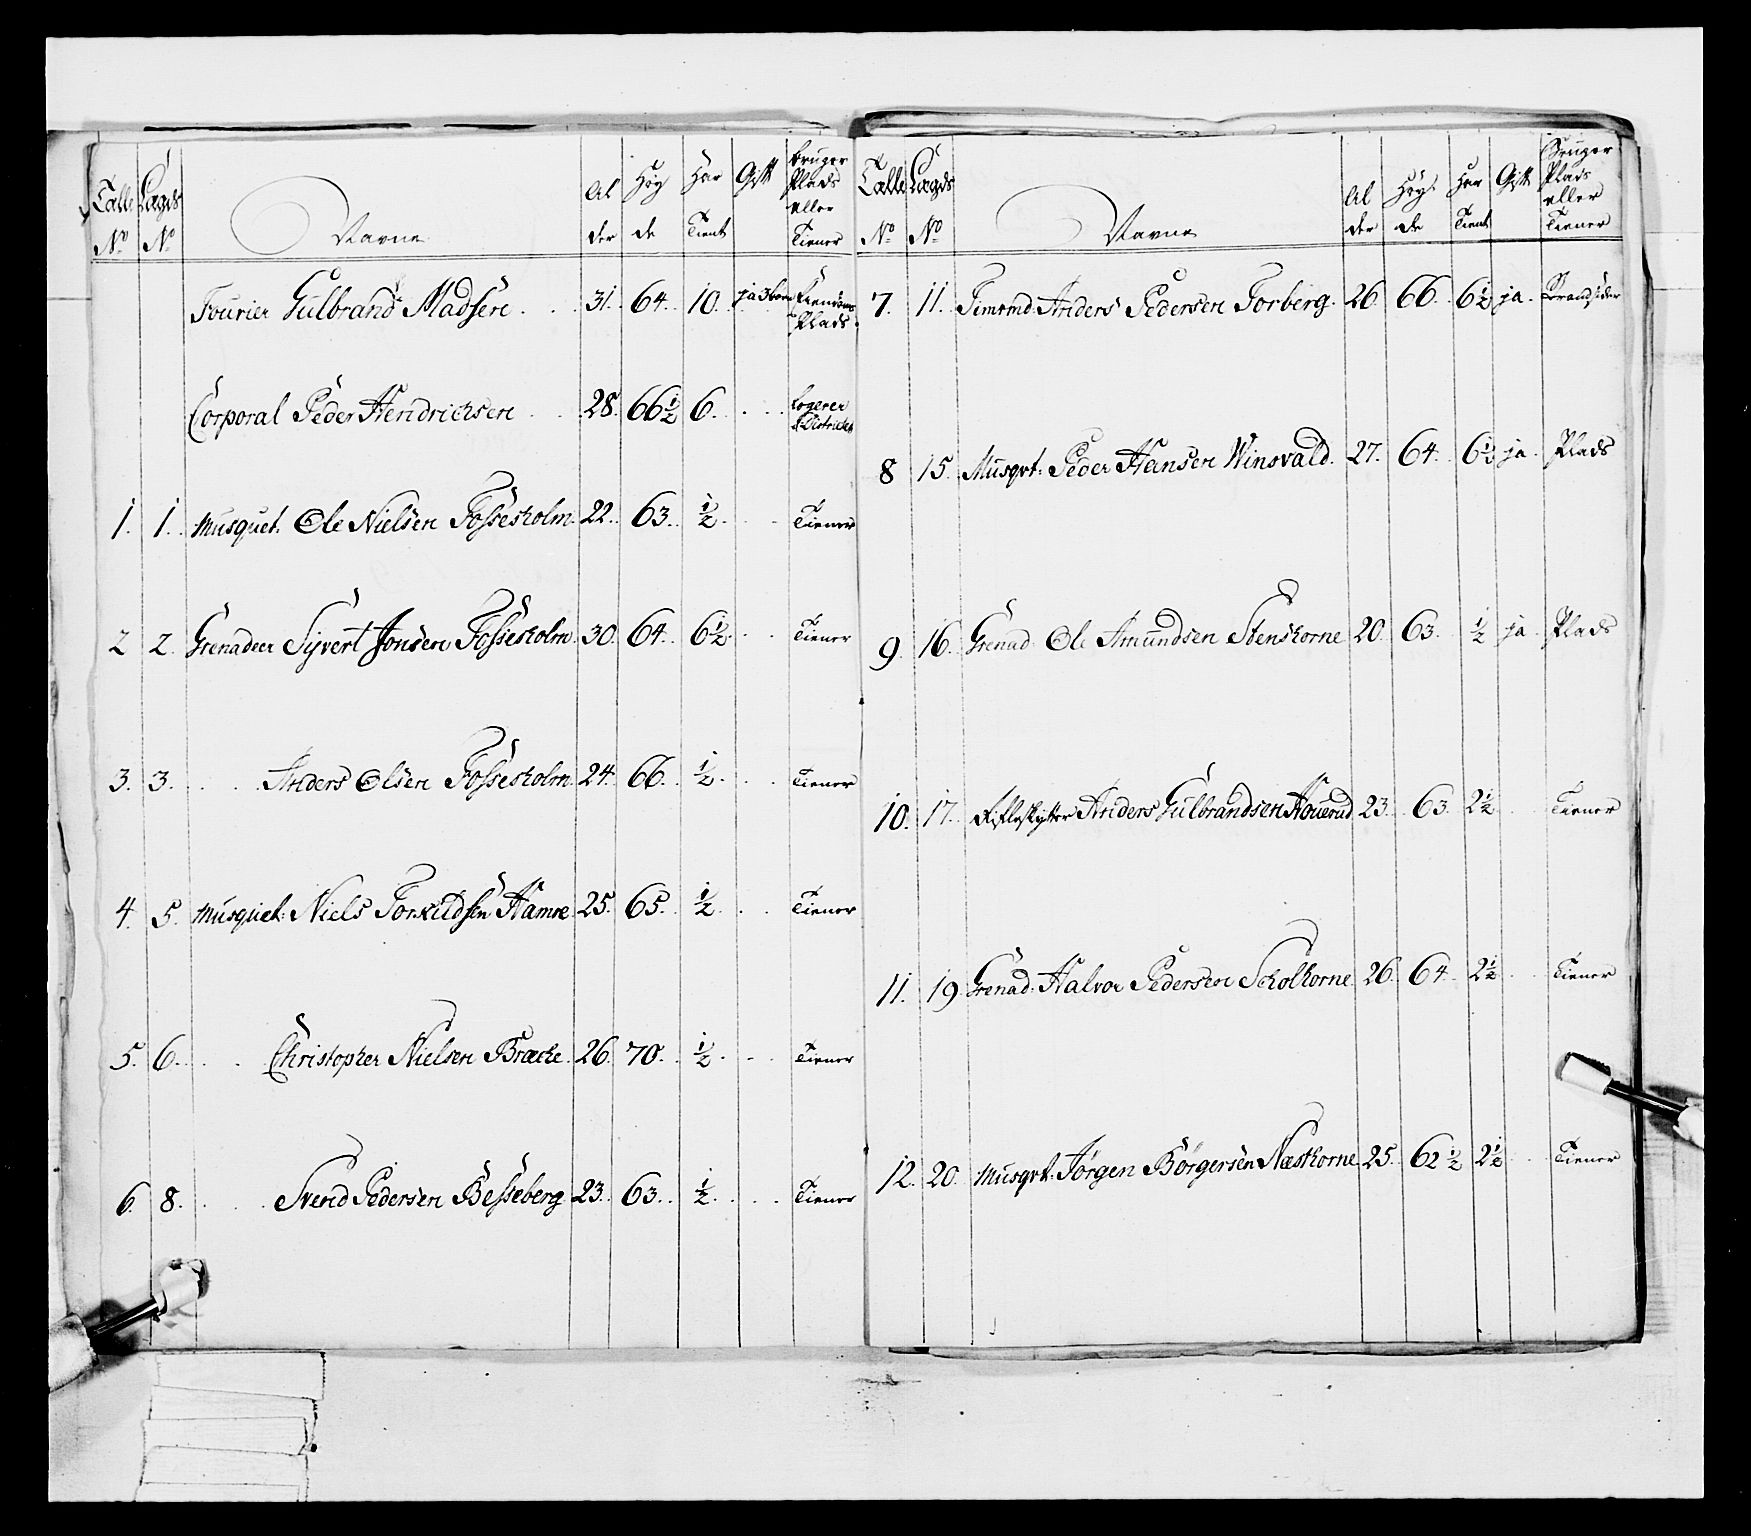 Talle No | Lægds No | Navne | Alder | Høyde | Har Tient | Gift | bruger Plads eller Tiener
Fourier Gulbrand Madsen . . 31. 64. 10. ja 3 børn Plads.
Corporal Peder Hendrichsen . . 28. 66½ 6. . . Logerer i Districtet
1. 1. Musquet: Ole Nielsen Fossesholm. 22. 63. ½ . . Tiener
2 2. Grenadeer Syvert Jonsen Fossesholm 30. 64. 6½ . . Tiener
3. 3. . . Anders Olsen Fossesholm 24. 66. ½ . . Tiener
4. 5. Musquet: Niels Torkildsen Hamre 25. 65. ½ . . Tiener
5. 6. . . Christopher Nielsen Bræche. 26. 70. ½ . . Tiener
6. 8. . . Svend Pedersen Besseberg 23. 63. ½ . . Tiener
Talle No | Lægds No | Navne | Alder | Høyde | Har Tient | Gift | Bruger Plads eller Tiener
7. 11. Timrmd: Anders Pedersen Torberg. 26. 66. 6½ ja. Brandsider
8 15. Musqvt: Peder Hansen Winsvald. 27. 64. 6½ ja. Plads
9. 16. Grenad: Ole Amundsen Stenshorne 20. 63. ½ ja. Plads
10. 17. Rifleskytter Anders Gulbrandsen Houerud 23. 63. 2½ . . Tiener
11. 19. Grenad: Halvor Pedersen Scholhorne 26. 64. 2½ . . Tiener
12. 20. Musqvt: Jørgen Børgersen Næshorne 25. 62½ 2½ . . Tiener